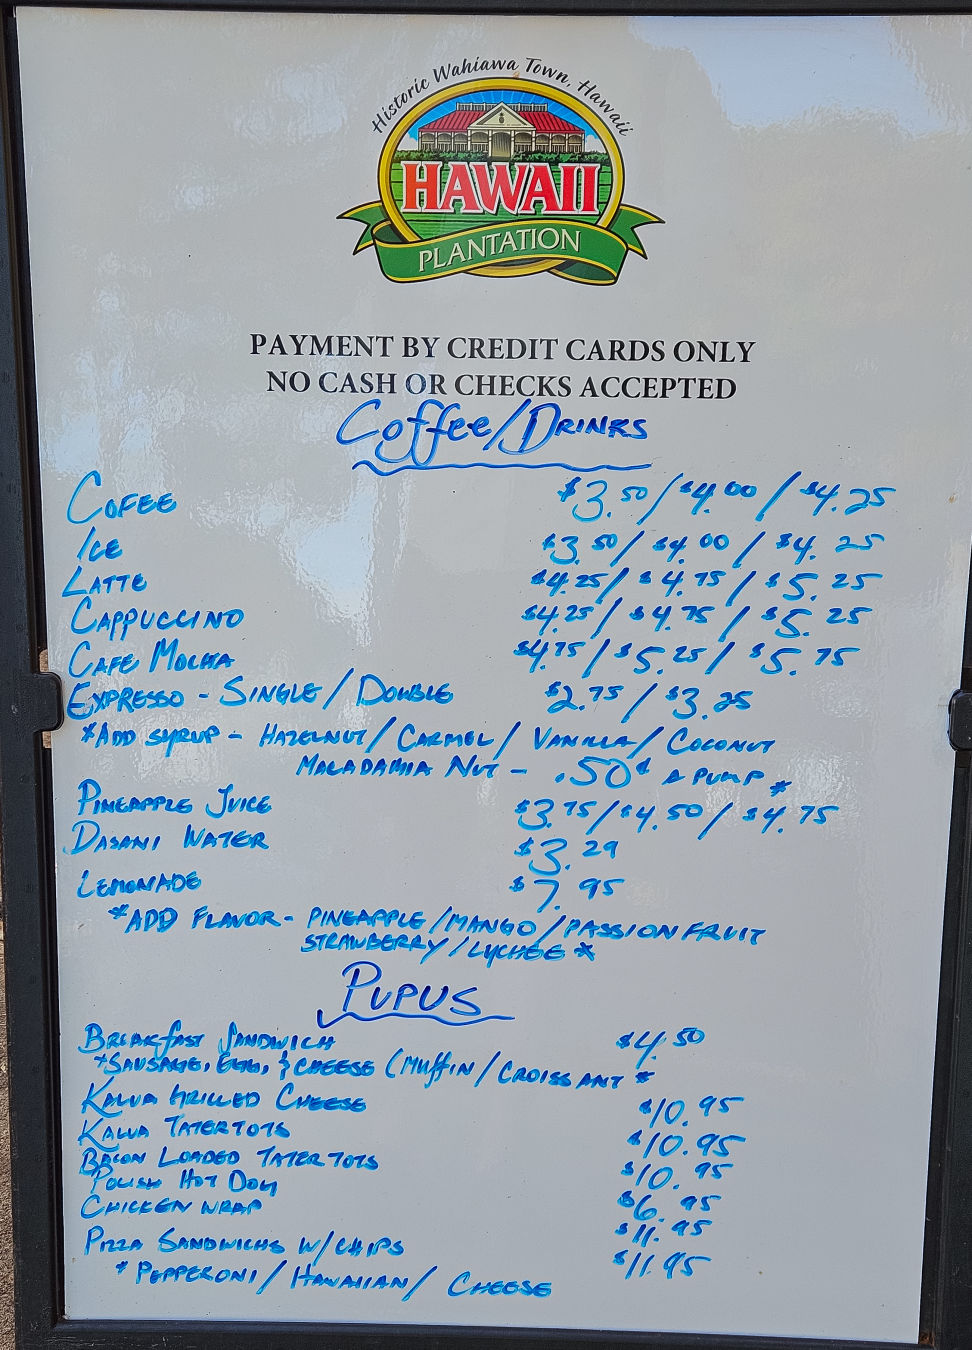 Historic Wahiawa Town, Hawaii
HAWAII
PLANTATION
PAYMENT BY CREDIT CARDS ONLY
NO CASH OR CHECKS ACCEPTED
Coffee/DRINKS
COFEE $3.50/$4.00/$4.25
ICE $3.50/$4.00/$4.25
LATTE $4.25/$4.75/$5.25
CAPPUCCINO $4.25/$4.75/$5.25
CAFE MOCHA $4.75/$5.25/$5.75
EXPRESSO - SINGLE/DOUBLE $2.75/$3.25
*ADD SYRUP - HAZELNUT/CARMEL/VANILLA/COCONUT
MACADAMIA NUT - .50¢ A PUMP*
PINEAPPLE JUICE $3.75/$4.50/$4.75
DASANI WATER $3.29
LEMONADE $7.95
*ADD FLAVOR - PINEAPPLE/MANGO/PASSION FRUIT
STRAWBERRY/LYCHEE*
PUPUS
BREAKfAST SANDWICH $4.50
*SAUSAGE, EGG, & CHEESE (MUffIN/CROISSANT*
KALUA GRILLED CHEESE $10.95
KALUA TATERTOTS $10.95
BACON LOADED TATERTOTS $10.95
POLISH HOT DOG $6.95
CHICKEN WRAP $11.95
PIZZA SANDWICHS W/CHIPS $11.95
*PEPPERONI/HAWAIIAN/CHEESE